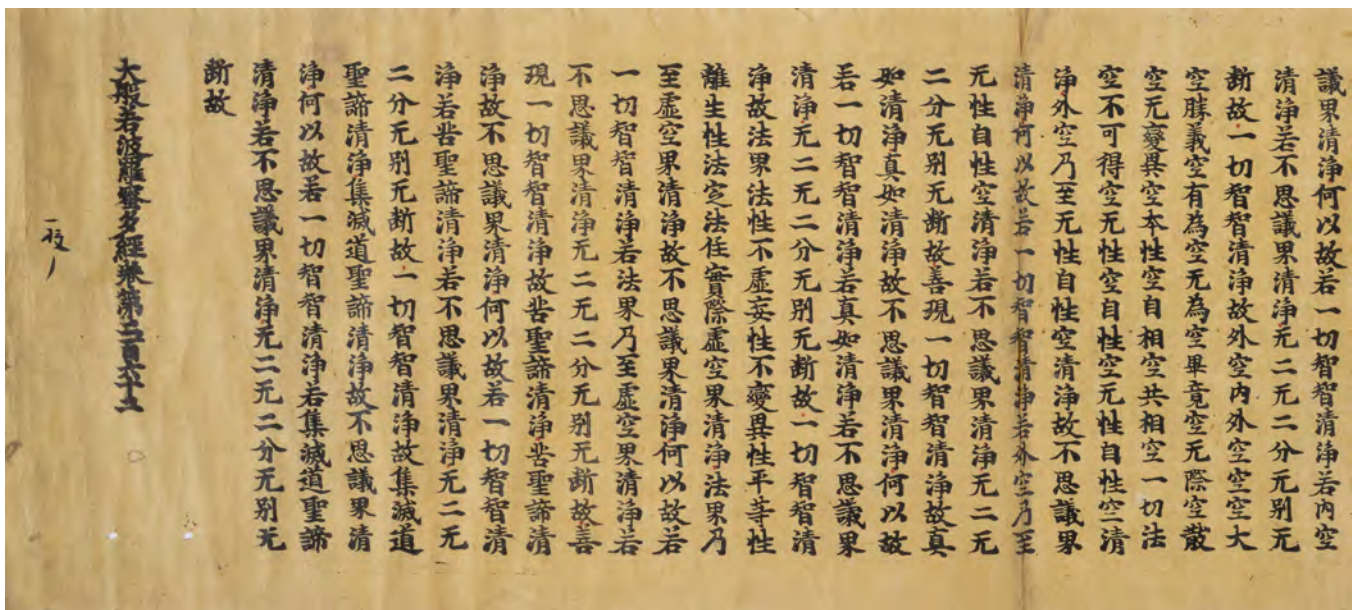 議界清淨何以故若一切智智清淨若内空
清淨若不思議界清淨无二无二分无別无
断故一切智智清淨故外空内外空空空大
空勝義空有為空无為空畢竟空无際空散
空无變異空本性空自相空共相空一切法
空不可得空无性空自性空无性自性空清
淨外空乃至无性自性空清淨故不思議界
清淨何以故若一切智智清淨若外空乃至
无性自性空清淨若不思議界清淨无二无
二分无別无断故善現一切智智清淨故真
如清淨真如清淨故不思議界清淨何以故
若一切智智清淨若真如清淨若不思議界
清淨无二无二分无別无断故一切智智清
淨故法界法性不虛妄性不變異性平等性
離生性法定法住實際虛空界清淨法界乃
至虛空界清淨故不思議界清淨何以故若
一切智智清淨若法界乃至虛空界清淨若
不思議界清淨无二无二分无別无断故善
現一切智智清淨故苦聖諦清淨苦聖諦清
淨故不思議界清淨何以故若一切智智清
淨若苦聖諦清淨若不思議界清淨无二无
二分无別无断故一切智智清淨故集滅道
聖諦清淨集滅道聖諦清淨故不思議界清
淨何以故若一切智智清淨若集滅道聖諦
清淨若不思議界清淨无二无二分无別无
断故
大般若波羅蜜多經卷第二百六十五
一校